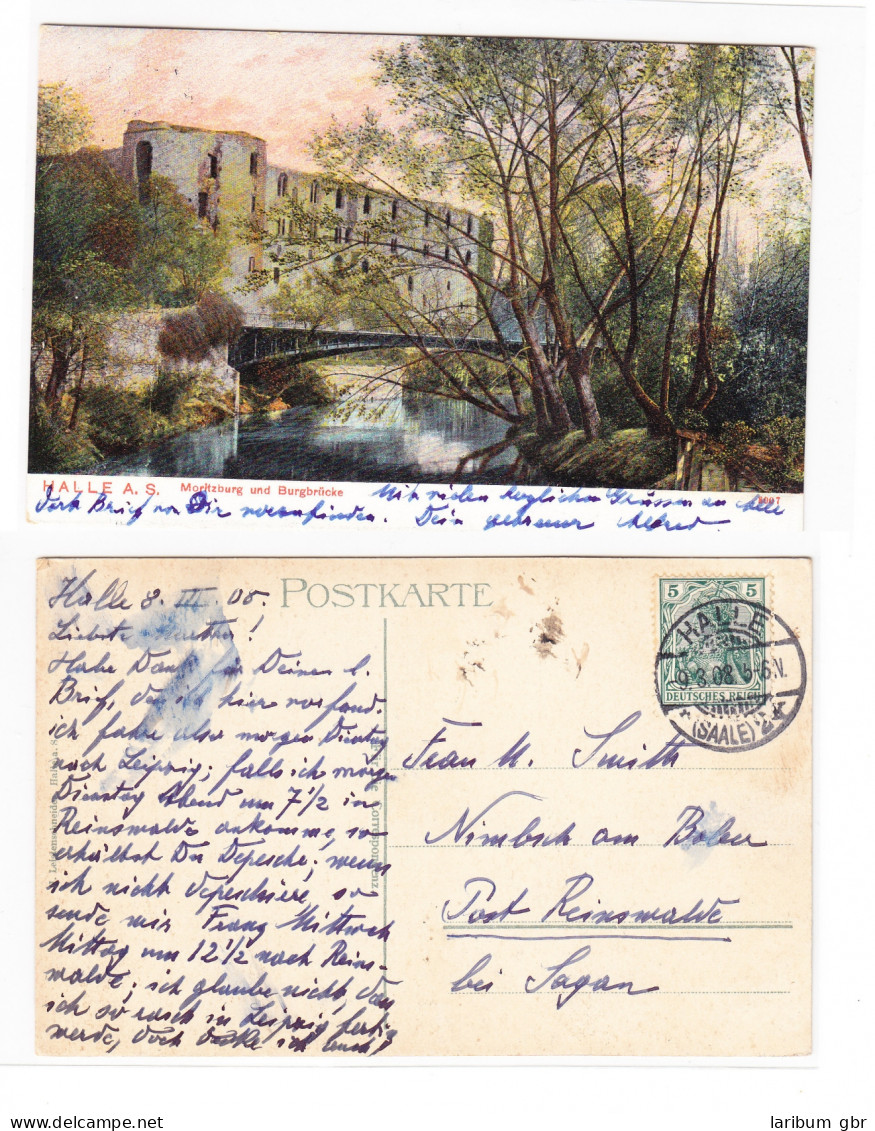 HALLE A. S. Moritzburg und Burgbrücke
Mit vielen herzlichen Grüssen an alle
Brief von Dir vorzufinden. Dein Alfred.
Halle 8. III. 08.
Liebste Martha!
Habe Dank für Deinen l.
Brief, den ich hier vorfand.
ich fahre also morgen Dienstag
nach Leipzig; falls ich morgen
Dienstag Abend um 7 1/2 in
Reinswalde ankomme, so
erhältst Du Depesche; wenn
ich nicht depeschiere, so
sende mir Franz Mittwoch
Mittag um 12 1/2 nach Reins-
walde; ich glaube nicht, dass
ich so rasch in Leipzig fertig
werde, doch ich
POSTKARTE
Correspondenz
5 5
DEUTSCHES REICH
HALLE
9.3.08. 5-6V.
* (SAALE) 2 *
Frau M. Smith
Nimbsch am Bober
Post Reinswalde
bei Sagan
laribum gbr